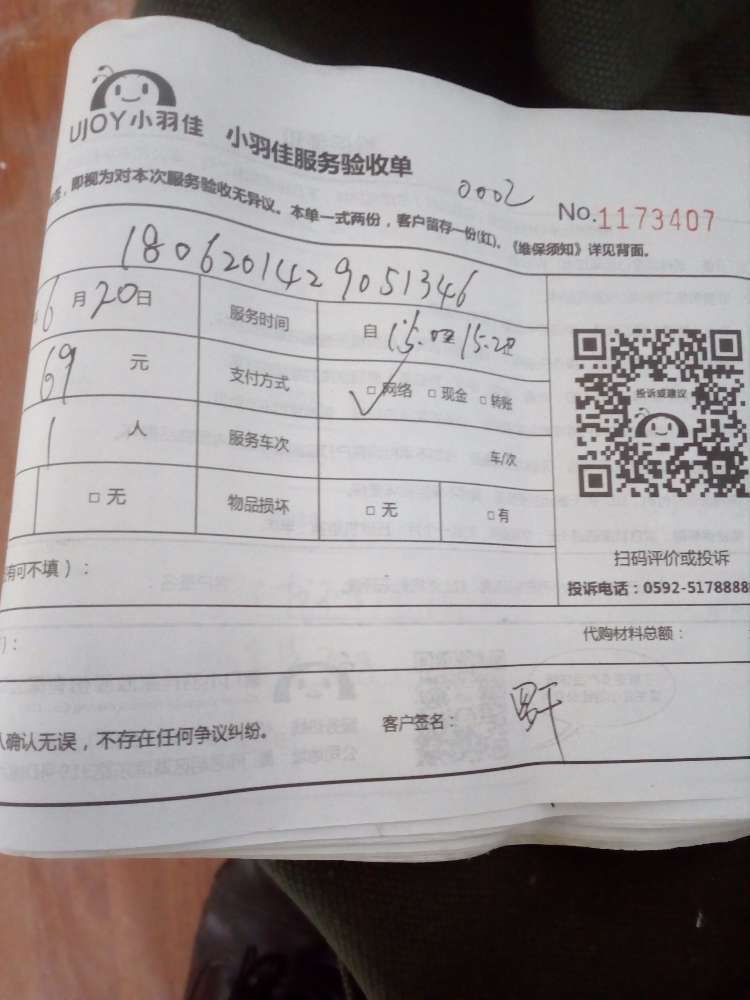 UJOY小羽佳 小羽佳服务验收单
0002
No.1173407
即视为对本次服务验收无异议。本单一式两份，客户留存一份(红)。《维保须知》详见背面。
1806201429051346
6月20日 服务时间 自
69元 支付方式 □网络 □现金 □转账
1人 服务车次 车/次
□无 物品损坏 □无 □有
投诉或建议
扫码评价或投诉
有可不填）：
投诉电话：0592-5178888
代购材料总额：
确认无误，不存在任何争议纠纷。 客户签名：